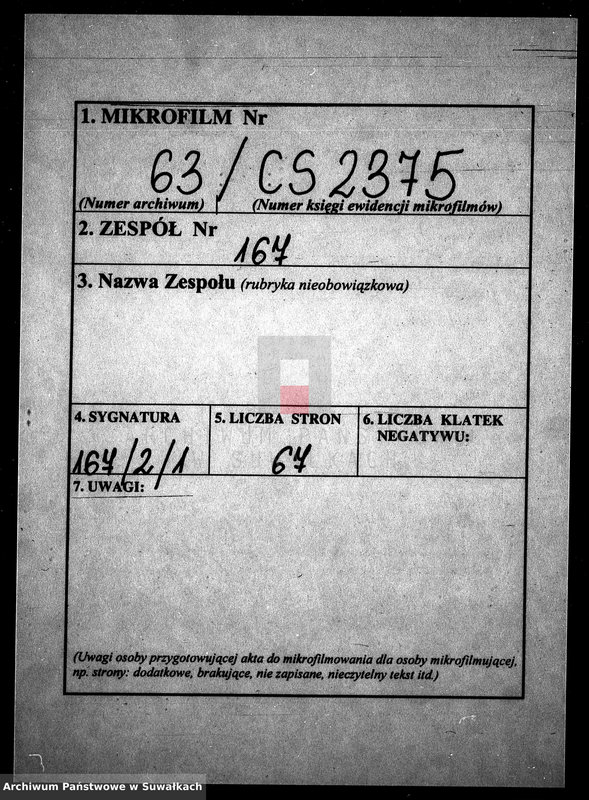 1. MIKROFILM Nr
63 / CS 2375
(Numer archiwum) (Numer księgi ewidencji mikrofilmów)
2. ZESPÓŁ Nr
167
3. Nazwa Zespołu (rubryka nieobowiązkowa)
4. SYGNATURA 5. LICZBA STRON 6. LICZBA KLATEK
NEGATYWU:
167/2/1 67
7. UWAGI:
(Uwagi osoby przygotowującej akta do mikrofilmowania dla osoby mikrofilmującej,
np. strony: dodatkowe, brakujące, nie zapisane, nieczytelny tekst itd.)
Archiwum Państwowe w Suwałkach